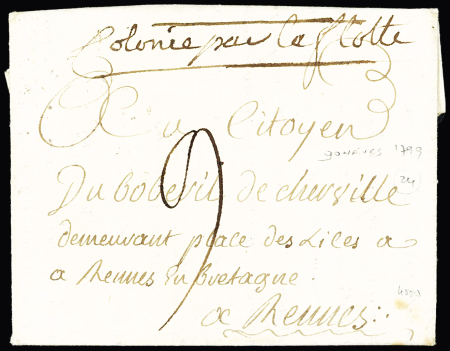 Colonie par la flotte
Au Citoyen
gonaives 1793
Du boberil de cherville
24
demeurant place des Lices a
a Rennes En Bretagne.
9
a Rennes